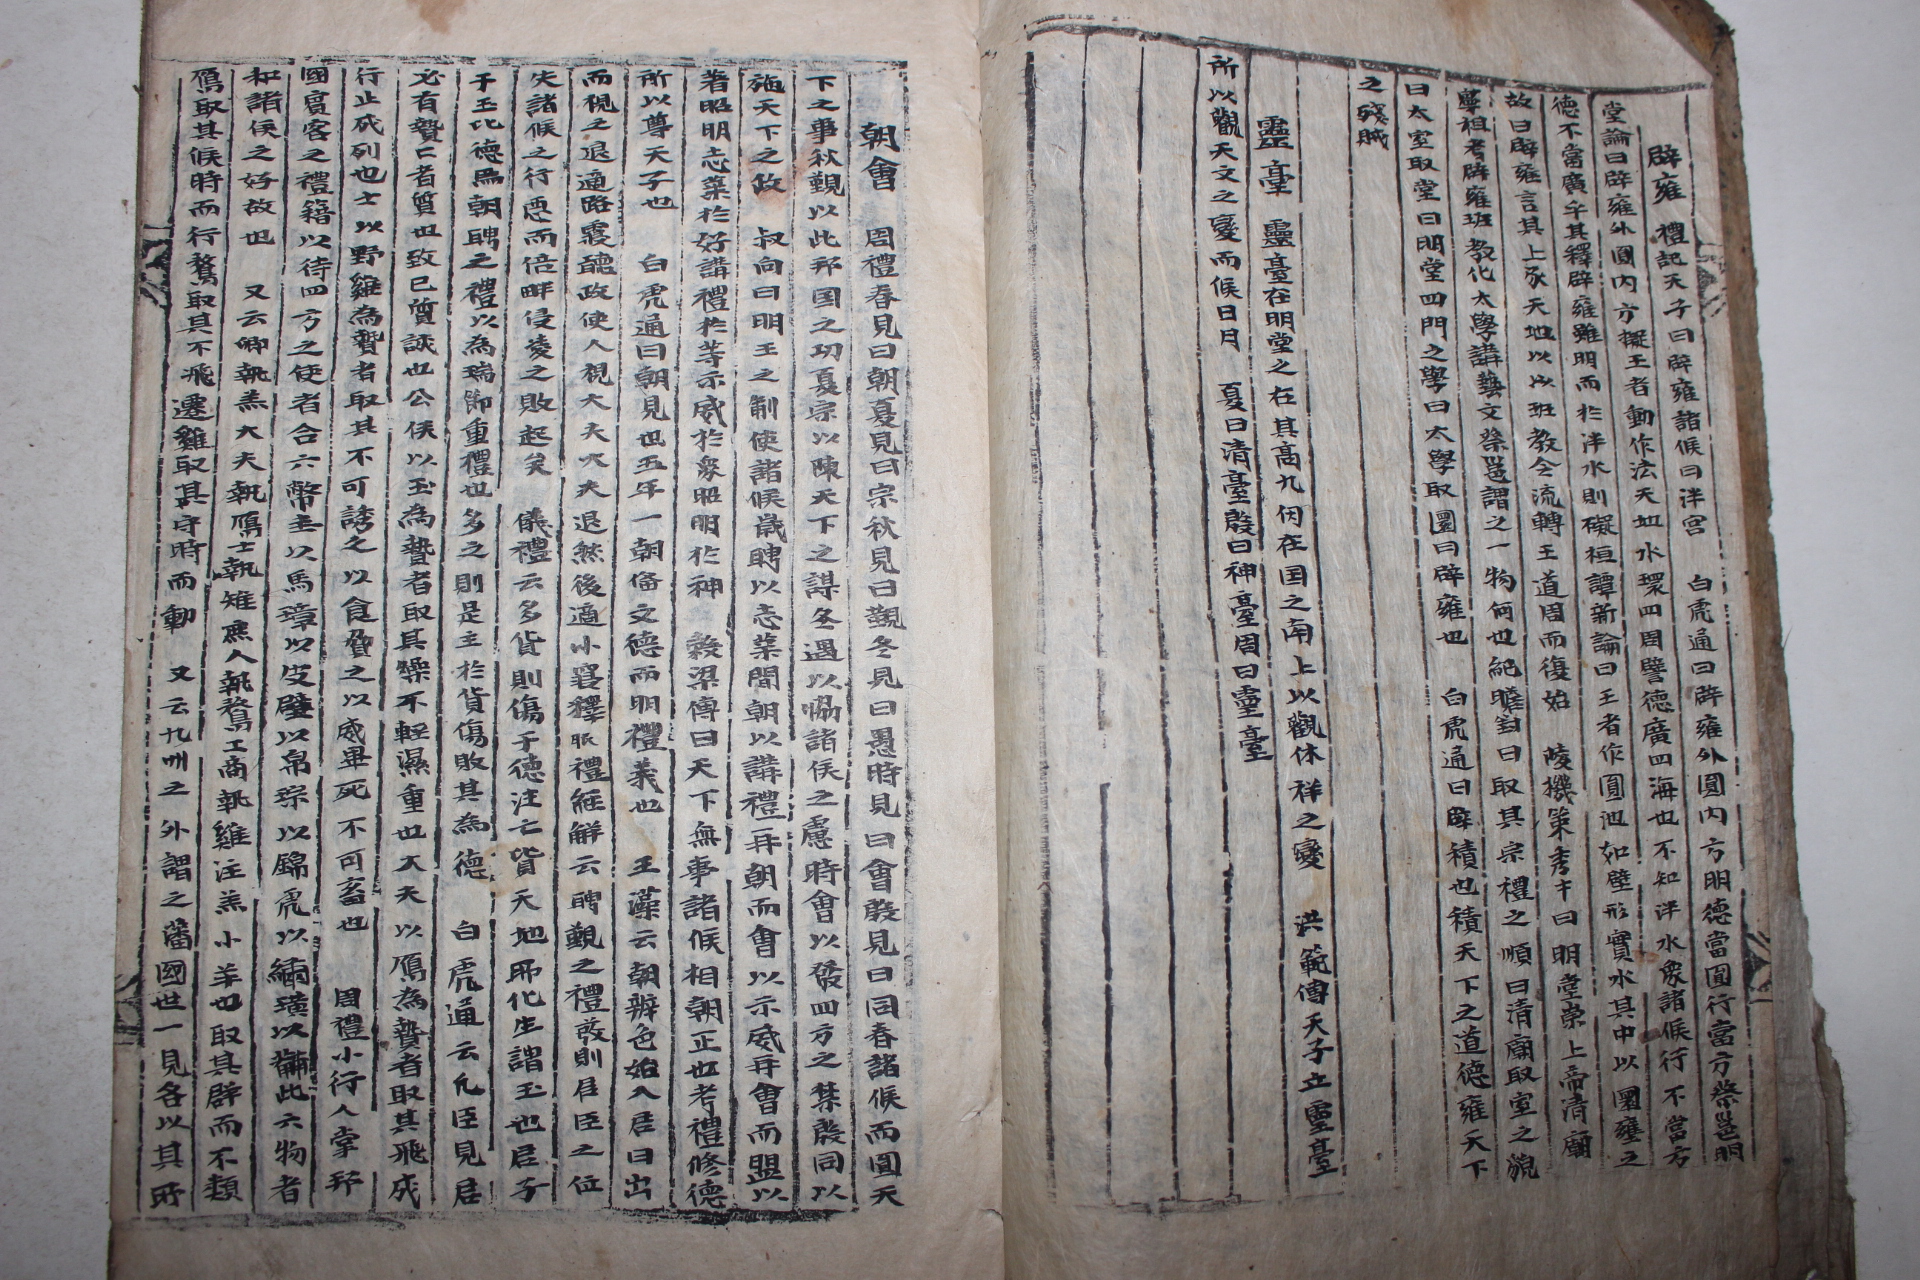 辟雍 禮記天子曰辟雍諸候曰泮宮 白虎通曰辟雍外圓内方明德當圓行當方蔡邕明
堂論曰辟雍外圓内方擬王者動作法天地水環四周譬德廣四海也不知泮水衆諸候行不當方
德不當廣乎其釋辟雍雖明而於泮水則礙桓譚新論曰王者作圓池如壁形實水其中以圜壅之
故曰辟雍言其上承天地以以班教令流轉王道周而復始 陵機策秀才曰明堂崇上帝清廟
寧祖考辟雍班教化太學講藝文蔡邕謂之一物何也紀瞻對曰取其宗禮之順曰清廟取室之貌
曰太室取堂曰明堂四門之學曰太學取圜曰辟雍也 白虎通曰辟積也積天下之道德雍天下
之殘賊
靈臺 靈臺在明堂之在其高九仞在国之南上以觀休祥之變 洪範傳天子立靈臺
所以觀天文之變而候日月 夏曰清臺殷曰神臺周曰靈臺
朝會 周禮春見曰朝夏見曰宗秋見曰覲冬見曰愚時見曰會殷見曰同春諸候而圖天
下之事秋覲以此邦国之功夏宗以陳天下之謀冬遇以恊諸侯之慮時會以發四方之禁殷同以
施天下之政 叔向曰明王之制使諸候歲聘以志業間朝以講禮再朝而會以示威再會而盟以
著昭明志業於好講禮於等示威於衆昭明於神 穀梁傳曰天下無事諸候相朝正也考禮修德
所以尊天子也 白虎通曰朝見也五年一朝俻文德而明禮義也 王藻云朝辨色始入君日出
而視之退適路寢聽政使人視大夫大夫退然後適小寢釋服禮經解云聘覲之禮廢則君臣之位
失諸候之行惡而倍畔侵凌之敗起矣 儀禮云多貨則傷于德注亡貨天地所化生謂玉也君子
于玉比德焉朝聘之禮以為瑞節重禮也多之則是主於貨傷敗其為德 白虎通云凡臣見君
必有贄亡者質也致已質誠也公侯以玉為贄者取其燥不輕濕重也大夫以鴈為贄者取其飛成
行止成列也士以野雞為贄者取其不可誘之以食脅之以威畢死不可畜也 周禮小行人掌邦
國賓客之禮籍以待四方之使者合六幣圭以馬璋以皮璧以帛琮以錦琥以繡璜以黼此六物者
和諸侯之好故也 又云卿執羔大夫執鴈士執雉庶人執鶩工商執雞注羔小羊也取其群而不類
鴈取其候時而行鶩取其不飛遷雞取其守時而動 又云九州之外謂之蕃國世一見各以其所